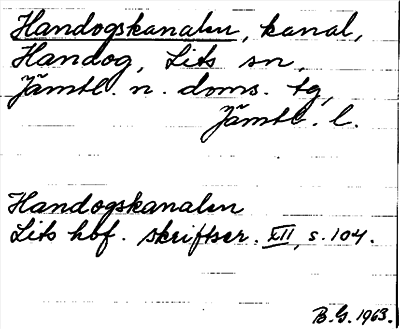 Handogskanalen, kanal,
Handog, Lits sn,
Jämtl. n. doms. tg,
Jämtl. l.
Handogskanalen
Lits hbf. skriftser. XII, s. 104.
B.G. 1963.